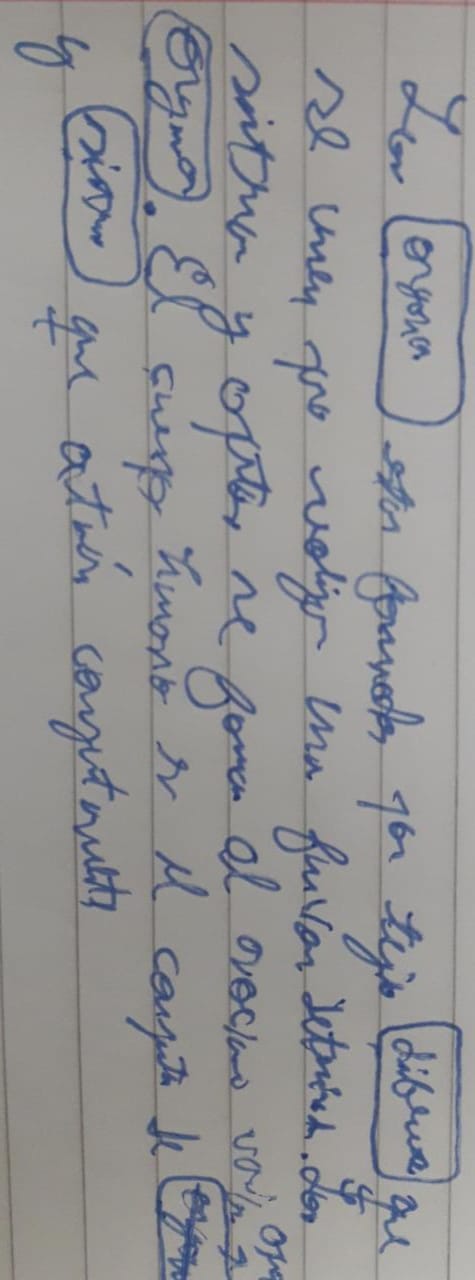 Los organos están formados por tejidos diferentes que
se unen para realizar una función determinada. Los
sistemas y aparatos se forman al asociarse varios
órganos. El cuerpo humano es el conjunto de
y sistemas que actúan conjuntamente